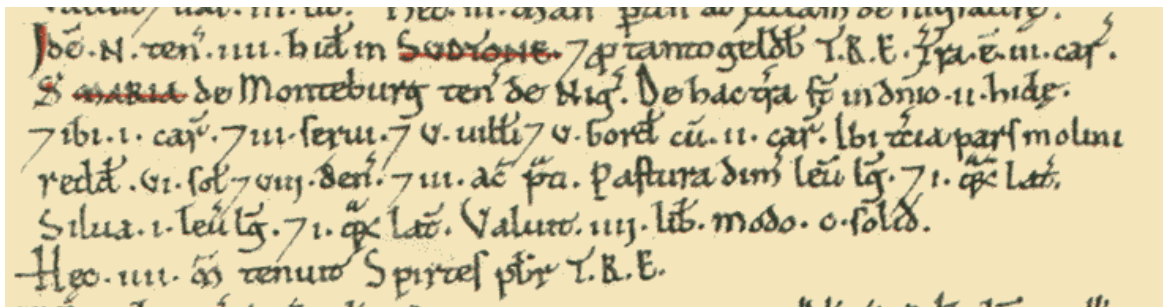 Idē·N·ten̄·iiii·hid̄ in SUDTONE·⁊ ꝑ tanto geldb̄ T.R.E. Tr̄a·ē·iii·car̄.
S MARIA de Monteburg ten̄ de Nig̃. De hac tr̄a s̄t in dn̄io·ii·hidę.
⁊ ibi·i·car̄.⁊ iii·serui·⁊ v·uilƚi ⁊ v·bord̄ cū·ii·car̄. Ibi t̄cia pars molini
redd̄·vi·sol̄ ⁊ viij·den̄·⁊ iii·ac̄ p̄ti. Pastura dim̄ leū lḡ·⁊ i·qƶ lat̄.
Silua·i·leū lḡ·⁊ i·qƶ lat̄. Valuit·iiij·lib̄·modo·c·solid̄.
Hec·iiii·m̄ tenuit Spirtes pb̄r T.R.E.